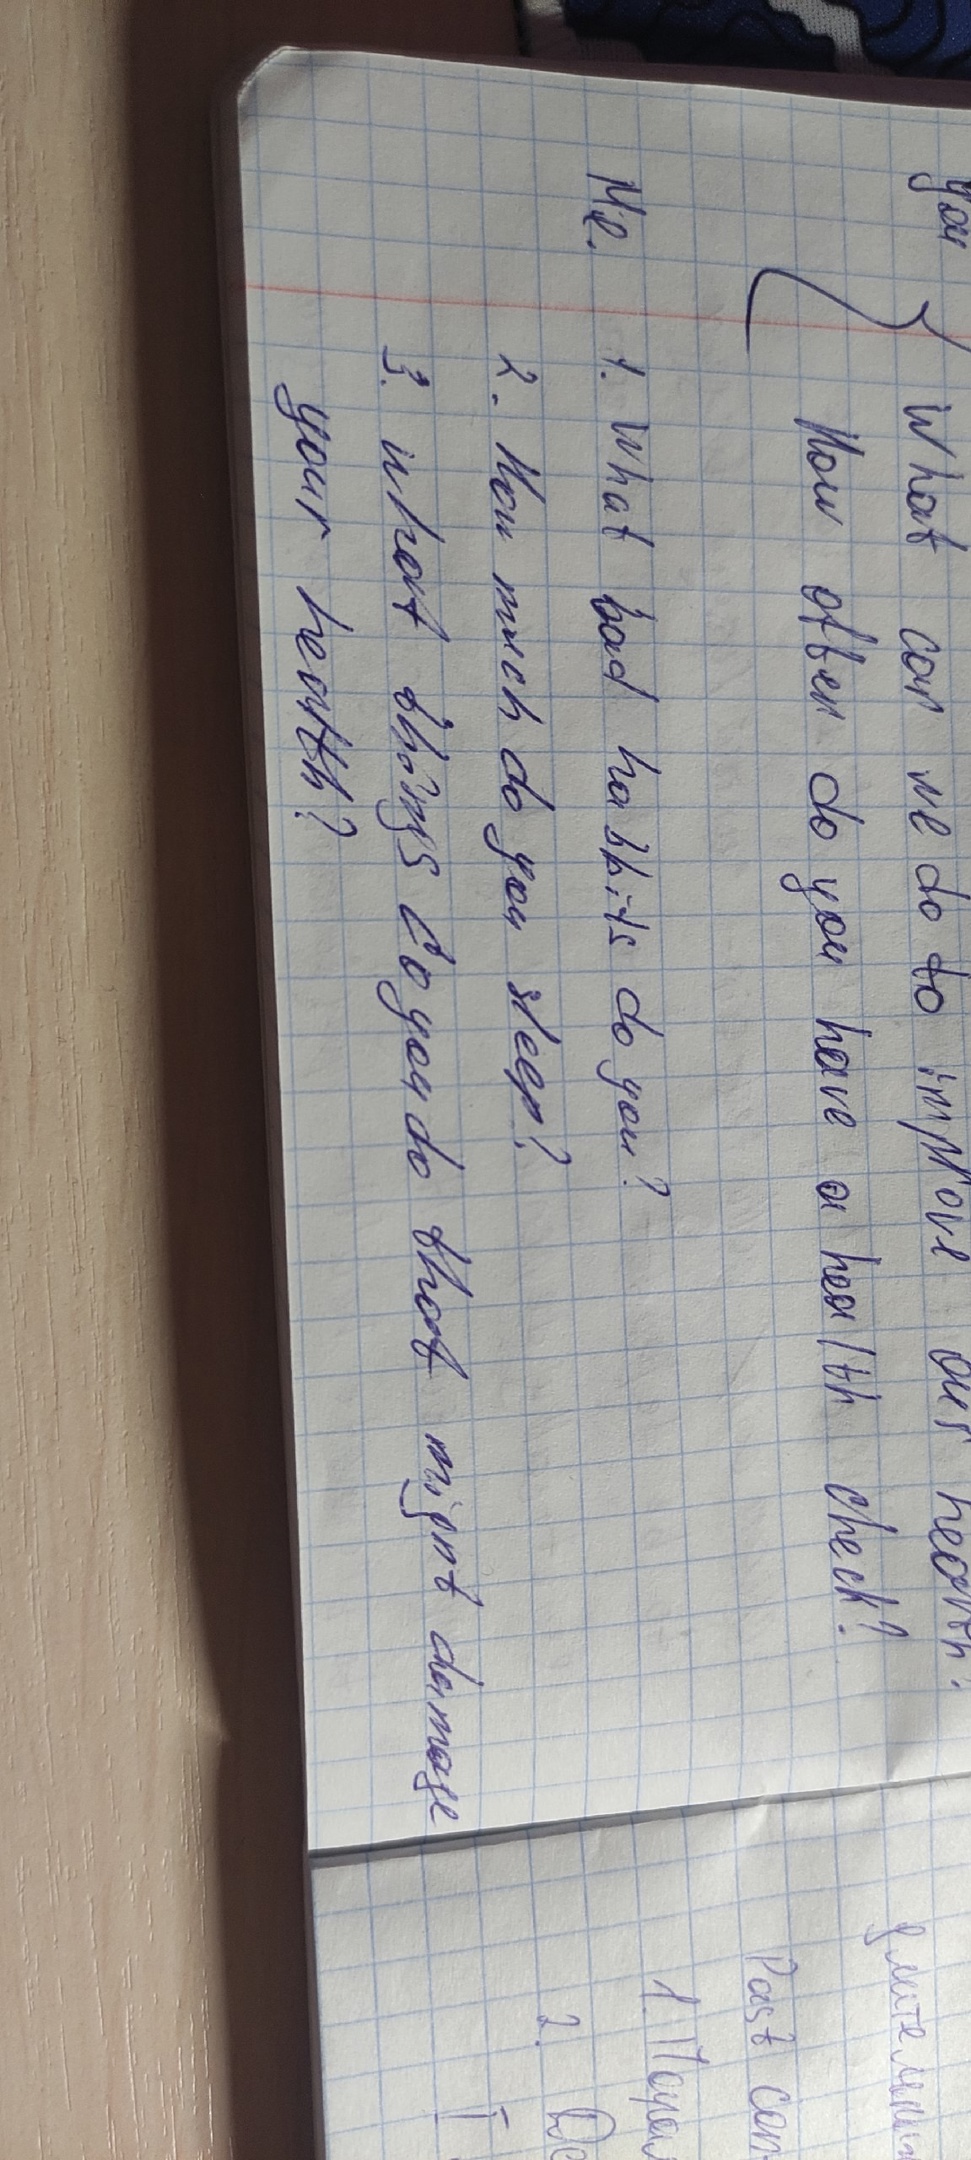 you What can we do to improve our health?
How often do you have a health check?
Me. 1. What bad habbits do you?
2. How much do you sleep?
3. what things do you do that might damage
your health?
Past con
1.
2. De
I